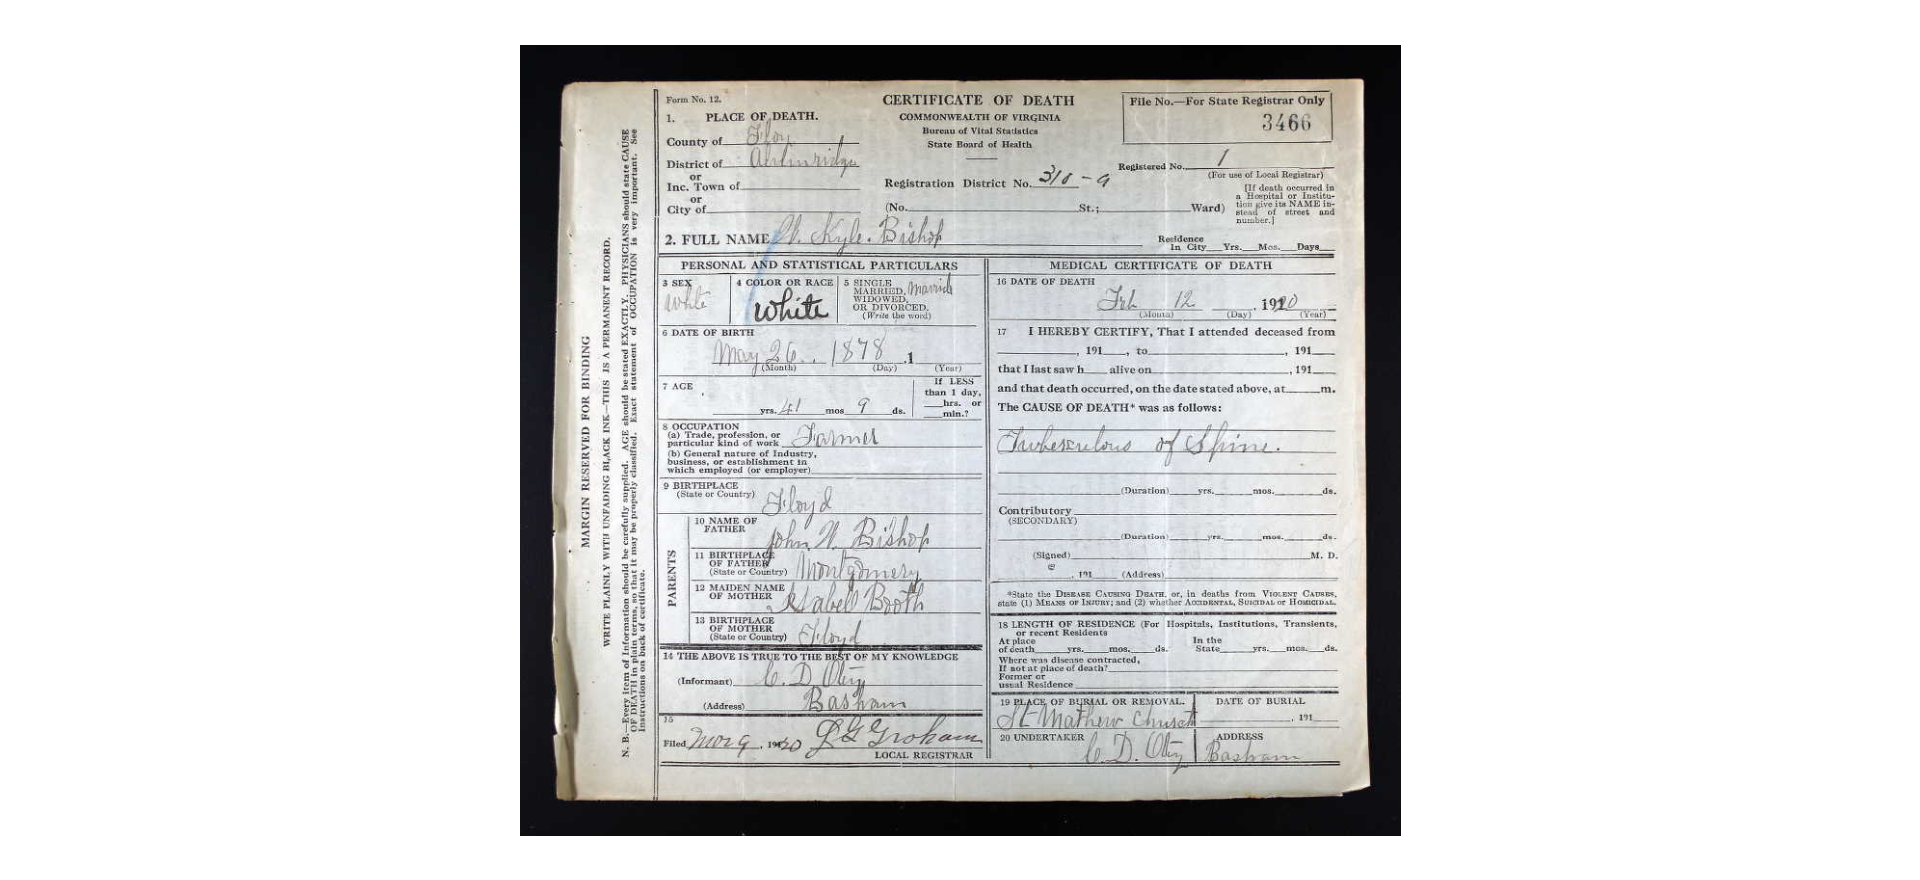 MARGIN RESERVED FOR BINDING
WRITE PLAINLY WITH UNFADING BLACK INK—THIS IS A PERMANENT RECORD.
N. B.—Every item of information should be carefully supplied. AGE should be stated EXACTLY. PHYSICIANS should state CAUSE
OF DEATH in plain terms, so that it may be properly classified. Exact statement of OCCUPATION is very important. See
instructions on back of certificate.
Form No. 12.
CERTIFICATE OF DEATH
COMMONWEALTH OF VIRGINIA
Bureau of Vital Statistics
State Board of Health
File No.—For State Registrar Only
3466
1. PLACE OF DEATH.
County of Floy
District of
or
Inc. Town of
or
City of
Registration District No. 310-9
Registered No. 1
(For use of Local Registrar)
(No. St.; Ward)
[If death occurred in
a Hospital or Institu-
tion give its NAME in-
stead of street and
number.]
2. FULL NAME W. Kyle. Bishop
Residence
In City Yrs. Mos. Days
PERSONAL AND STATISTICAL PARTICULARS
3 SEX
White
4 COLOR OR RACE
White
5 SINGLE
MARRIED, Married
WIDOWED,
OR DIVORCED.
(Write the word)
6 DATE OF BIRTH
May 26. 1878 .1
(Month) (Day) (Year)
7 AGE
yrs. 41 mos 9 ds.
If LESS
than 1 day,
hrs. or
min.?
8 OCCUPATION
(a) Trade, profession, or
particular kind of work Farmer
(b) General nature of Industry,
business, or establishment in
which employed (or employer)
9 BIRTHPLACE
(State or Country) Floyd
PARENTS
10 NAME OF
FATHER John W. Bishop
11 BIRTHPLACE
OF FATHER
(State or Country) Montgomery
12 MAIDEN NAME
OF MOTHER Isabell Booth
13 BIRTHPLACE
OF MOTHER
(State or Country) Floyd
14 THE ABOVE IS TRUE TO THE BEST OF MY KNOWLEDGE
(Informant) C. D. Otey
(Address) Basham
15
Filed Mar 9, 1920 L G Graham
LOCAL REGISTRAR
MEDICAL CERTIFICATE OF DEATH
16 DATE OF DEATH
Feb 12 , 1920
(Month) (Day) (Year)
17 I HEREBY CERTIFY, That I attended deceased from
, 191 , to , 191
that I last saw h alive on , 191
and that death occurred, on the date stated above, at m.
The CAUSE OF DEATH* was as follows:
Tuberculous of Spine.
(Duration) yrs. mos. ds.
Contributory
(SECONDARY)
(Duration) yrs. mos. ds.
(Signed) M. D.
, 191 (Address)
*State the DISEASE CAUSING DEATH, or, in deaths from VIOLENT CAUSES,
state (1) MEANS OF INJURY; and (2) whether ACCIDENTAL, SUICIDAL or HOMICIDAL.
18 LENGTH OF RESIDENCE (For Hospitals, Institutions, Transients,
or recent Residents
At place In the
of death yrs. mos. ds. State yrs. mos. ds.
Where was disease contracted,
If not at place of death?
Former or
usual Residence
19 PLACE OF BURIAL OR REMOVAL.
St Mathew Church
DATE OF BURIAL
, 191
20 UNDERTAKER
C. D. Otey
ADDRESS
Basham